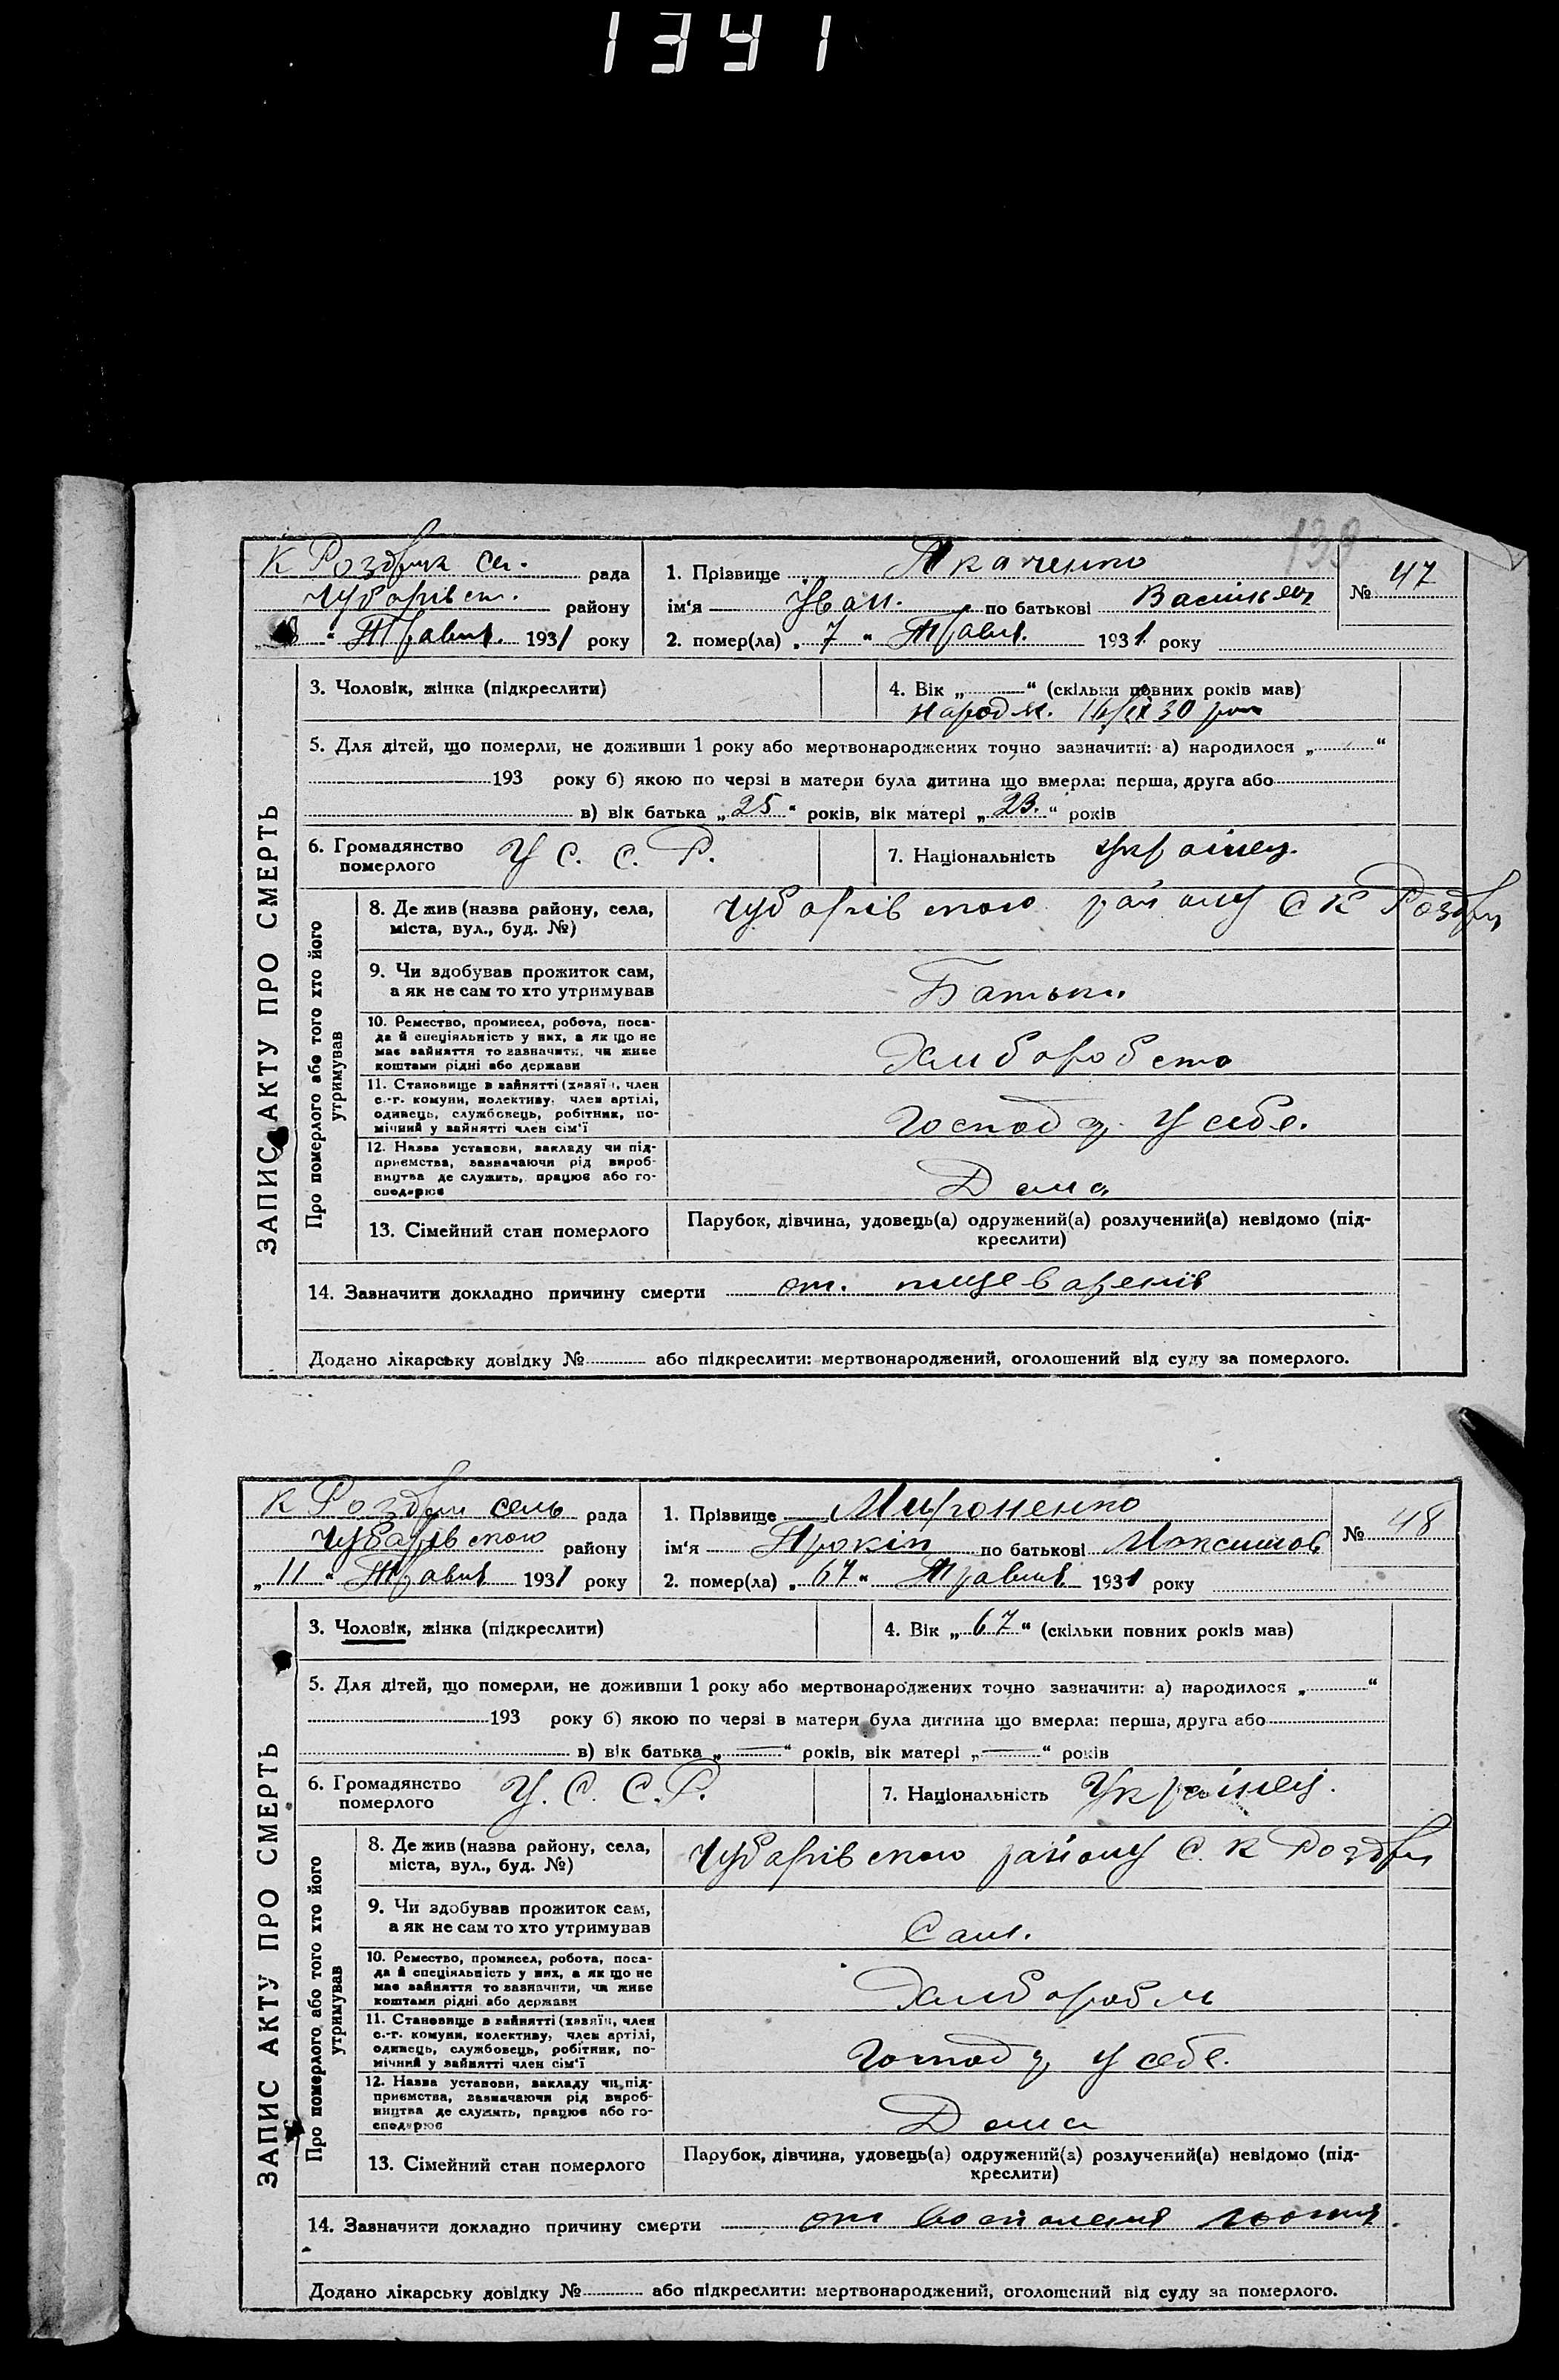 1341
139
К Роздори сел. рада
Чубарівськ. району
" Травня 1931 року
1. Прізвище Ткаченко
ім'я Іван. по батькові Васильев
№ 47
2. помер(ла) „ 7 " Травня. 1931 року
3. Чоловік, жінка (підкреслити)
4. Вік „ " (скільки повних років мав)
народж. 16/IX 30 року
5. Для дітей, що померли, не доживши 1 року або мертвонароджених точно зазначити: а) народилося „ "
193 року б) якою по черзі в матери була дитина що вмерла: перша, друга або
в) вік батька „ 25 " років, вік матері „ 23. " років
6. Громадянство померлого У С. С. Р.
7. Національність Українец.
ЗАПИС АКТУ ПРО СМЕРТЬ
Про померлого або того хто його утримував
8. Де жив (назва району, села, міста, вул., буд. №)
Чубарівського району С К Роздори
9. Чи здобував прожиток сам, а як не сам то хто утримував
Батьки.
10. Ремество, промисел, робота, посада й спеціяльність у них, а як що не має зайняття то зазначити, чи живе коштами рідні або держави
Хлиборобство
11. Становище в зайнятті (хазяїн, член с.-г. комуни, колективу, член артілі, одинець, службовець, робітник, помічний у зайнятті член сім'ї
Господ. у себе.
12. Назва установи, закладу чи підприємства, зазначаючи рід виробництва де служить, працює або господарює
Дома
13. Сімейний стан померлого
Парубок, дівчина, удовець(а) одружений(а) розлучений(а) невідомо (підкреслити)
14. Зазначити докладно причину смерти от. пищеваренія
Додано лікарську довідку № або підкреслити: мертвонароджений, оголошений від суду за померлого.
К Роздори сель рада
Чубарівского району
„ 11 " Травня 1931 року
1. Прізвище Мироненко
ім'я Прокіп по батькові Максимов
№ 48
2. помер(ла) „ 67 " Травня 1931 року
3. Чоловік, жінка (підкреслити)
4. Вік „ 67 " (скільки повних років мав)
5. Для дітей, що померли, не доживши 1 року або мертвонароджених точно зазначити: а) народилося „ "
193 року б) якою по черзі в матери була дитина що вмерла: перша, друга або
в) вік батька „ — " років, вік матері „ — " років
6. Громадянство померлого У. С. С. Р.
7. Національність Українец.
ЗАПИС АКТУ ПРО СМЕРТЬ
Про померлого або того хто його утримував
8. Де жив (назва району, села, міста, вул., буд. №)
Чубарівского району С. К Роздори
9. Чи здобував прожиток сам, а як не сам то хто утримував
Сам.
10. Ремество, промисел, робота, посада й спеціяльність у них, а як що не має зайняття то зазначити, чи живе коштами рідні або держави
Хлибороб
11. Становище в зайнятті (хазяїн, член с.-г. комуни, колективу, член артілі, одинець, службовець, робітник, помічний у зайнятті член сім'ї
Господ. у себе.
12. Назва установи, закладу чи підприємства, зазначаючи рід виробництва де служить, працює або господарює
Дома
13. Сімейний стан померлого
Парубок, дівчина, удовець(а) одружений(а) розлучений(а) невідомо (підкреслити)
14. Зазначити докладно причину смерти от воспаления
Додано лікарську довідку № або підкреслити: мертвонароджений, оголошений від суду за померлого.